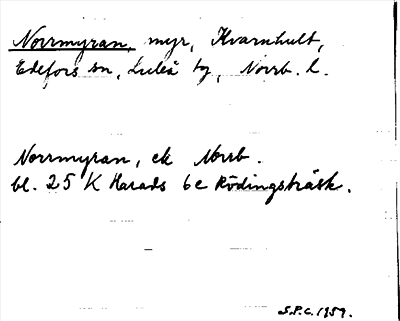 Norrmyran, myr, Kvarnhult,
Edefors sn, Luleå tg, Norrb. l.
Norrmyran, ek Norrb.
bl. 25 K Harads 6e Rödingsträsk.
S.P.C. 1959.